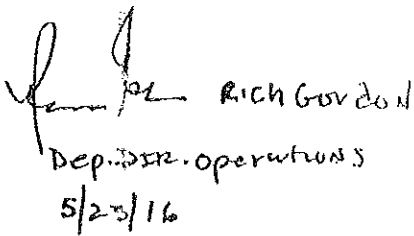 Rich Gordon
Dep. Dir. Operations
5/23/16